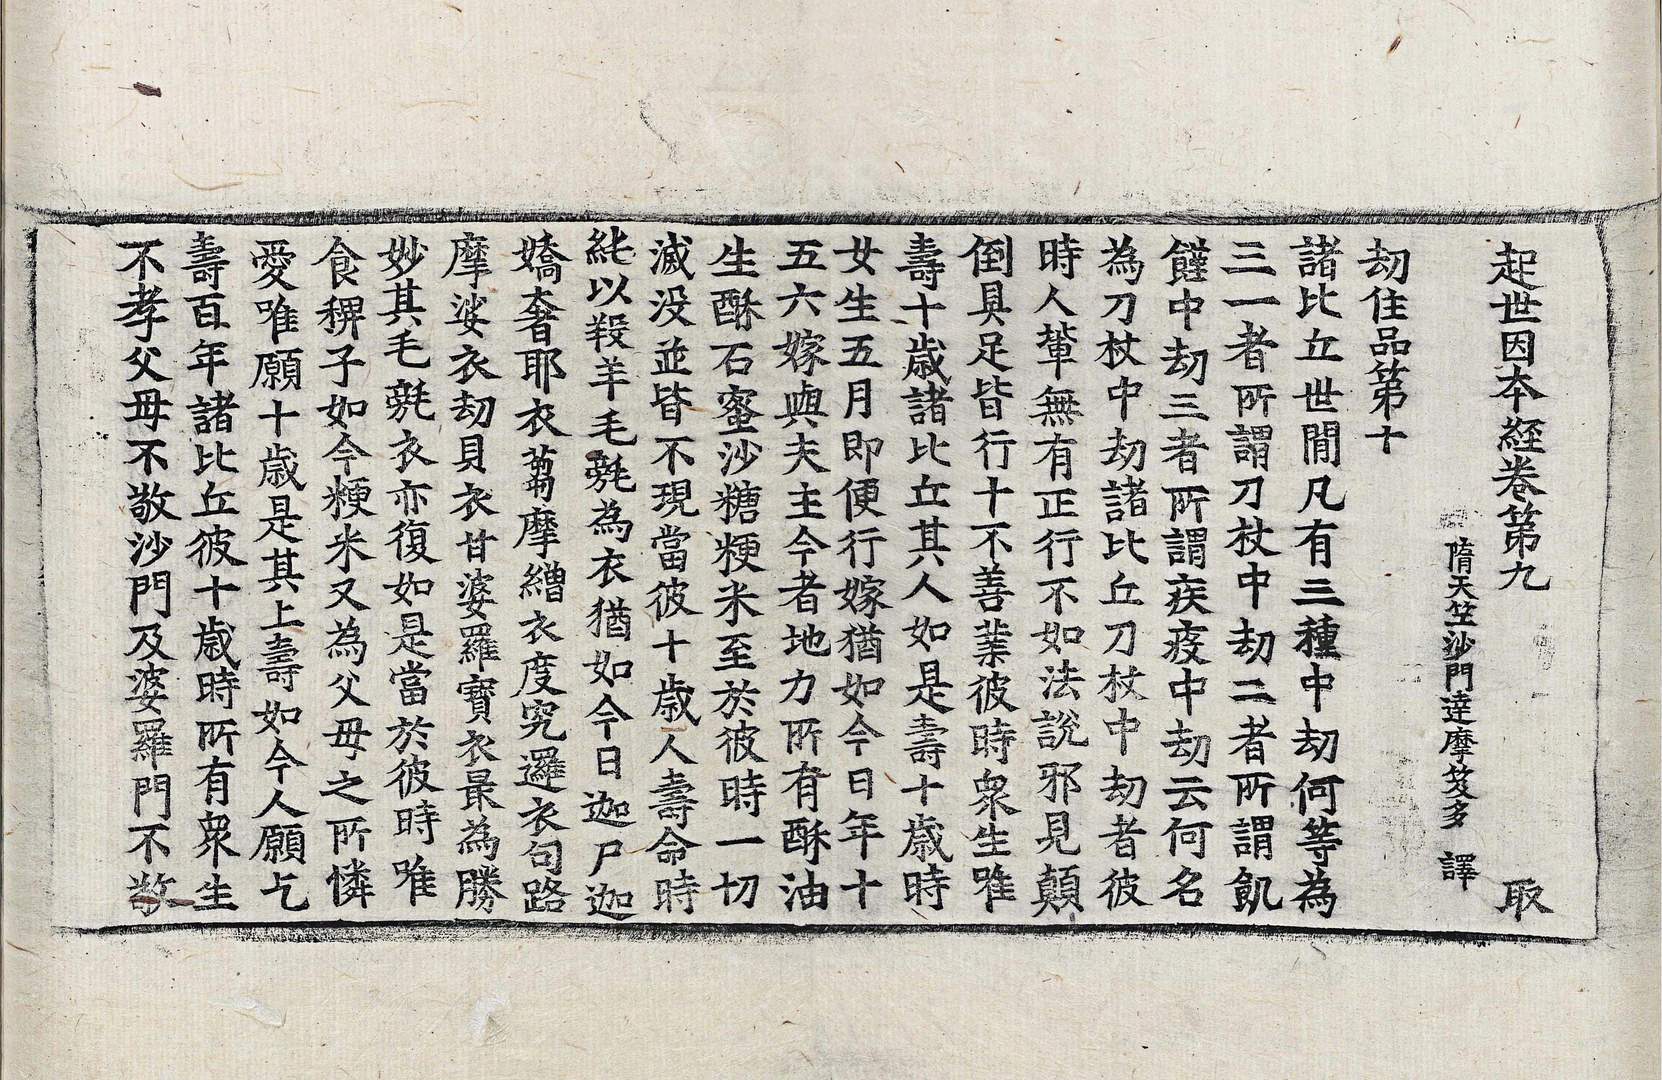 起世因本經卷第九　取
隋天竺沙門達摩笈多　譯
劫住品第十
諸比丘世間凡有三種中劫何等為
三一者所謂刀杖中劫二者所謂飢
饉中劫三者所謂疾疫中劫云何名
為刀杖中劫諸比丘刀杖中劫者彼
時人輩無有正行不如法說邪見顛
倒具足皆行十不善業彼時衆生唯
壽十歲諸比丘其人如是壽十歲時
女生五月即便行嫁猶如今日年十
五六嫁與夫主今者地力所有酥油
生酥石蜜沙糖粳米至於彼時一切
滅没並皆不現當彼十歲人壽命時
純以羖羊毛毾為衣猶如今日迦尸迦
嬌奢耶衣蒭摩繒衣度究邏衣句路
摩婆衣劫貝衣甘婆羅寶衣最為勝
妙其毛毾衣亦復如是當於彼時唯
食稗子如今粳米又為父母之所憐
愛唯願十歲是其上壽如今人願乞
壽百年諸比丘彼十歲時所有衆生
不孝父母不敬沙門及婆羅門不敬